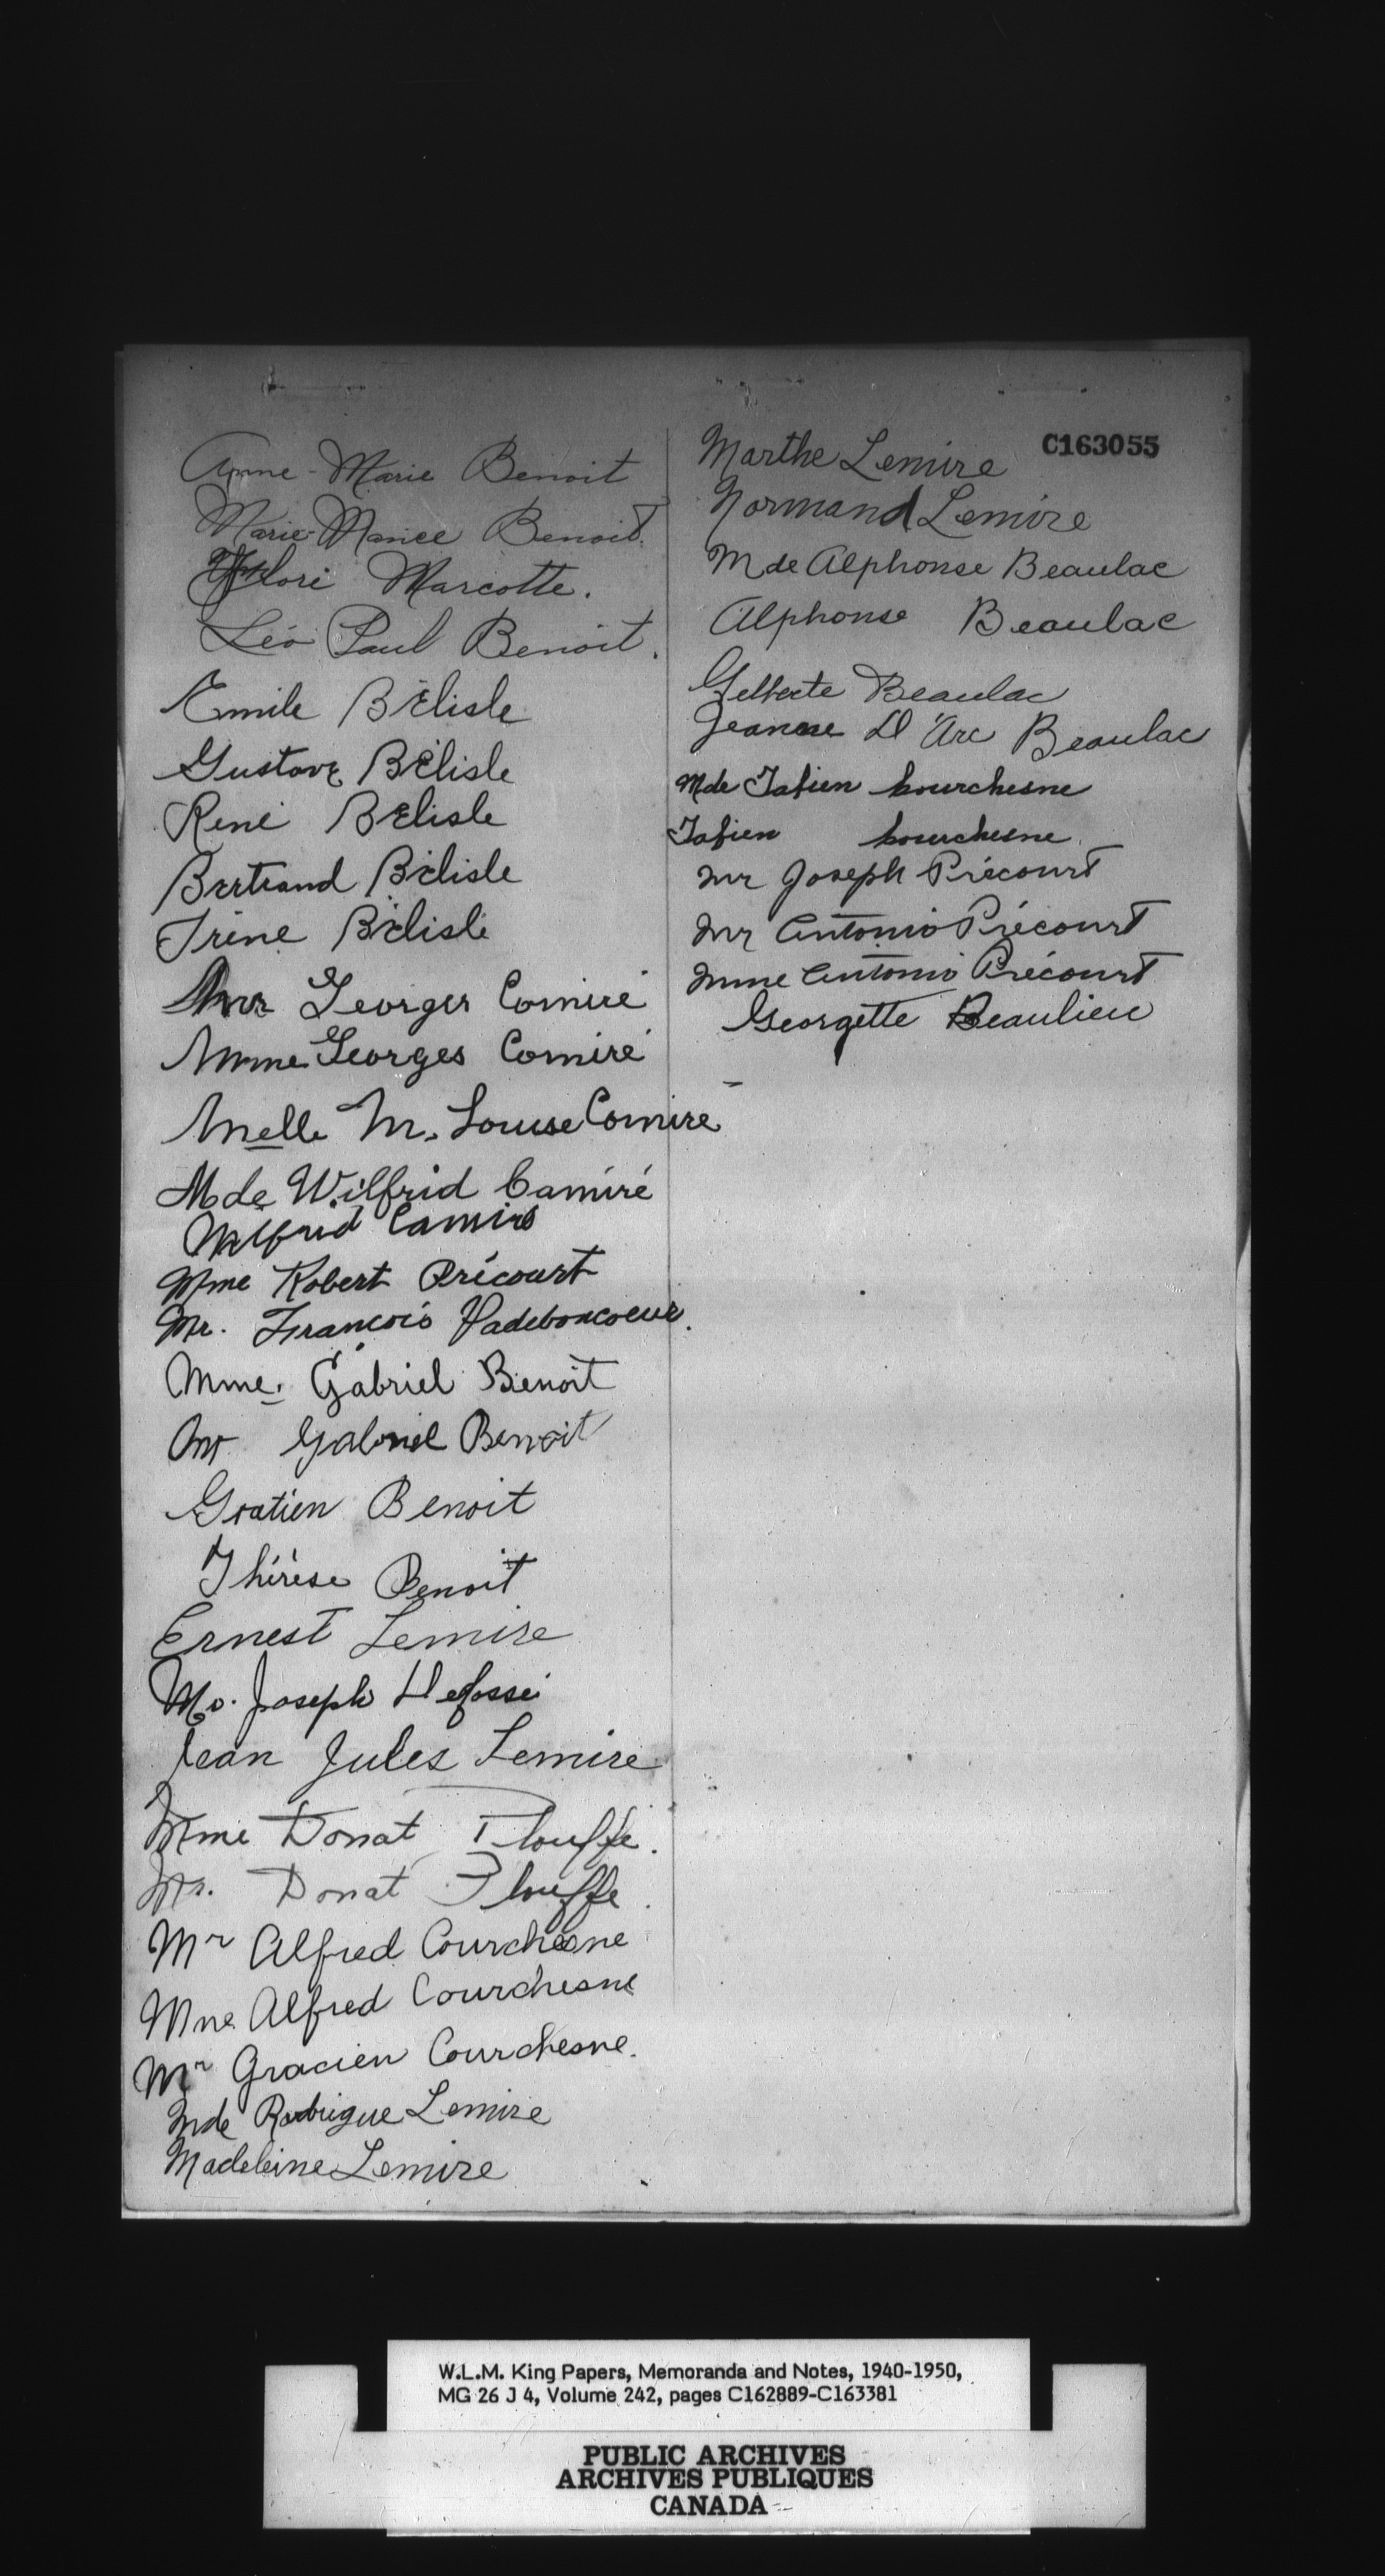 Anne-Marie Benoit
Marie-Mance Benoit.
Flori Marcotte.
Léo Paul Benoit.
Emile Bélisle
Gustave Bélisle
René Bélisle
Bertrand Bélisle
Irène Bélisle
Mr Georges Comiré
Mme Georges Comiré
Melle M. Louise Comire
Mde Wilfrid Camiré
Wilfrid Camiré
Mme Robert Précourt
Mr. François Vadeboncoeur.
Mme. Gabriel Benoit
Mr Gabriel Benoit
Gratien Benoit
Thérèse Benoit
Ernest Lemire
Mr. Joseph Defossé
Jean Jules Lemire
Mme Donat Plouffe.
Mr. Donat Plouffe.
Mr Alfred Courchesne
Mne Alfred Courchesne
Mr Gracien Courchesne.
Mde Rodrigue Lemire
Madeleine Lemire
C163055
Marthe Lemire
Normand Lemire
Mde Alphonse Beaulac
Alphonse Beaulac
Gilberte Beaulac
Jeanne D'Arc Beaulac
Mde Fabien Courchesne
Fabien Courchesne
Mr Joseph Précourt
Mr Antonio Précourt
Mme Antonio Précourt
Georgette Beaulieu
W.L.M. King Papers, Memoranda and Notes, 1940-1950,
MG 26 J 4, Volume 242, pages C162889-C163381
PUBLIC ARCHIVES
ARCHIVES PUBLIQUES
CANADA